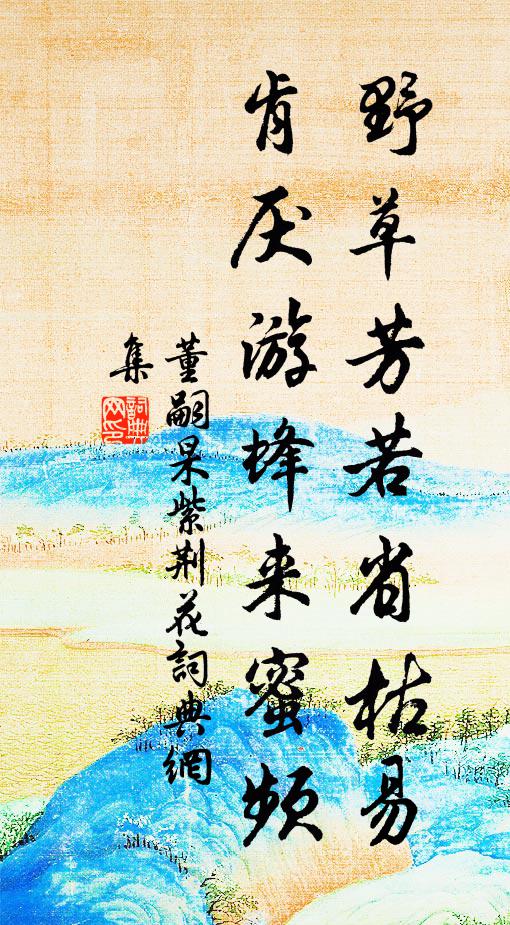 野草芳若省枯易
肯厌游蜂来蜜频
董嗣杲紫荆花詞典網
集
詞典网印